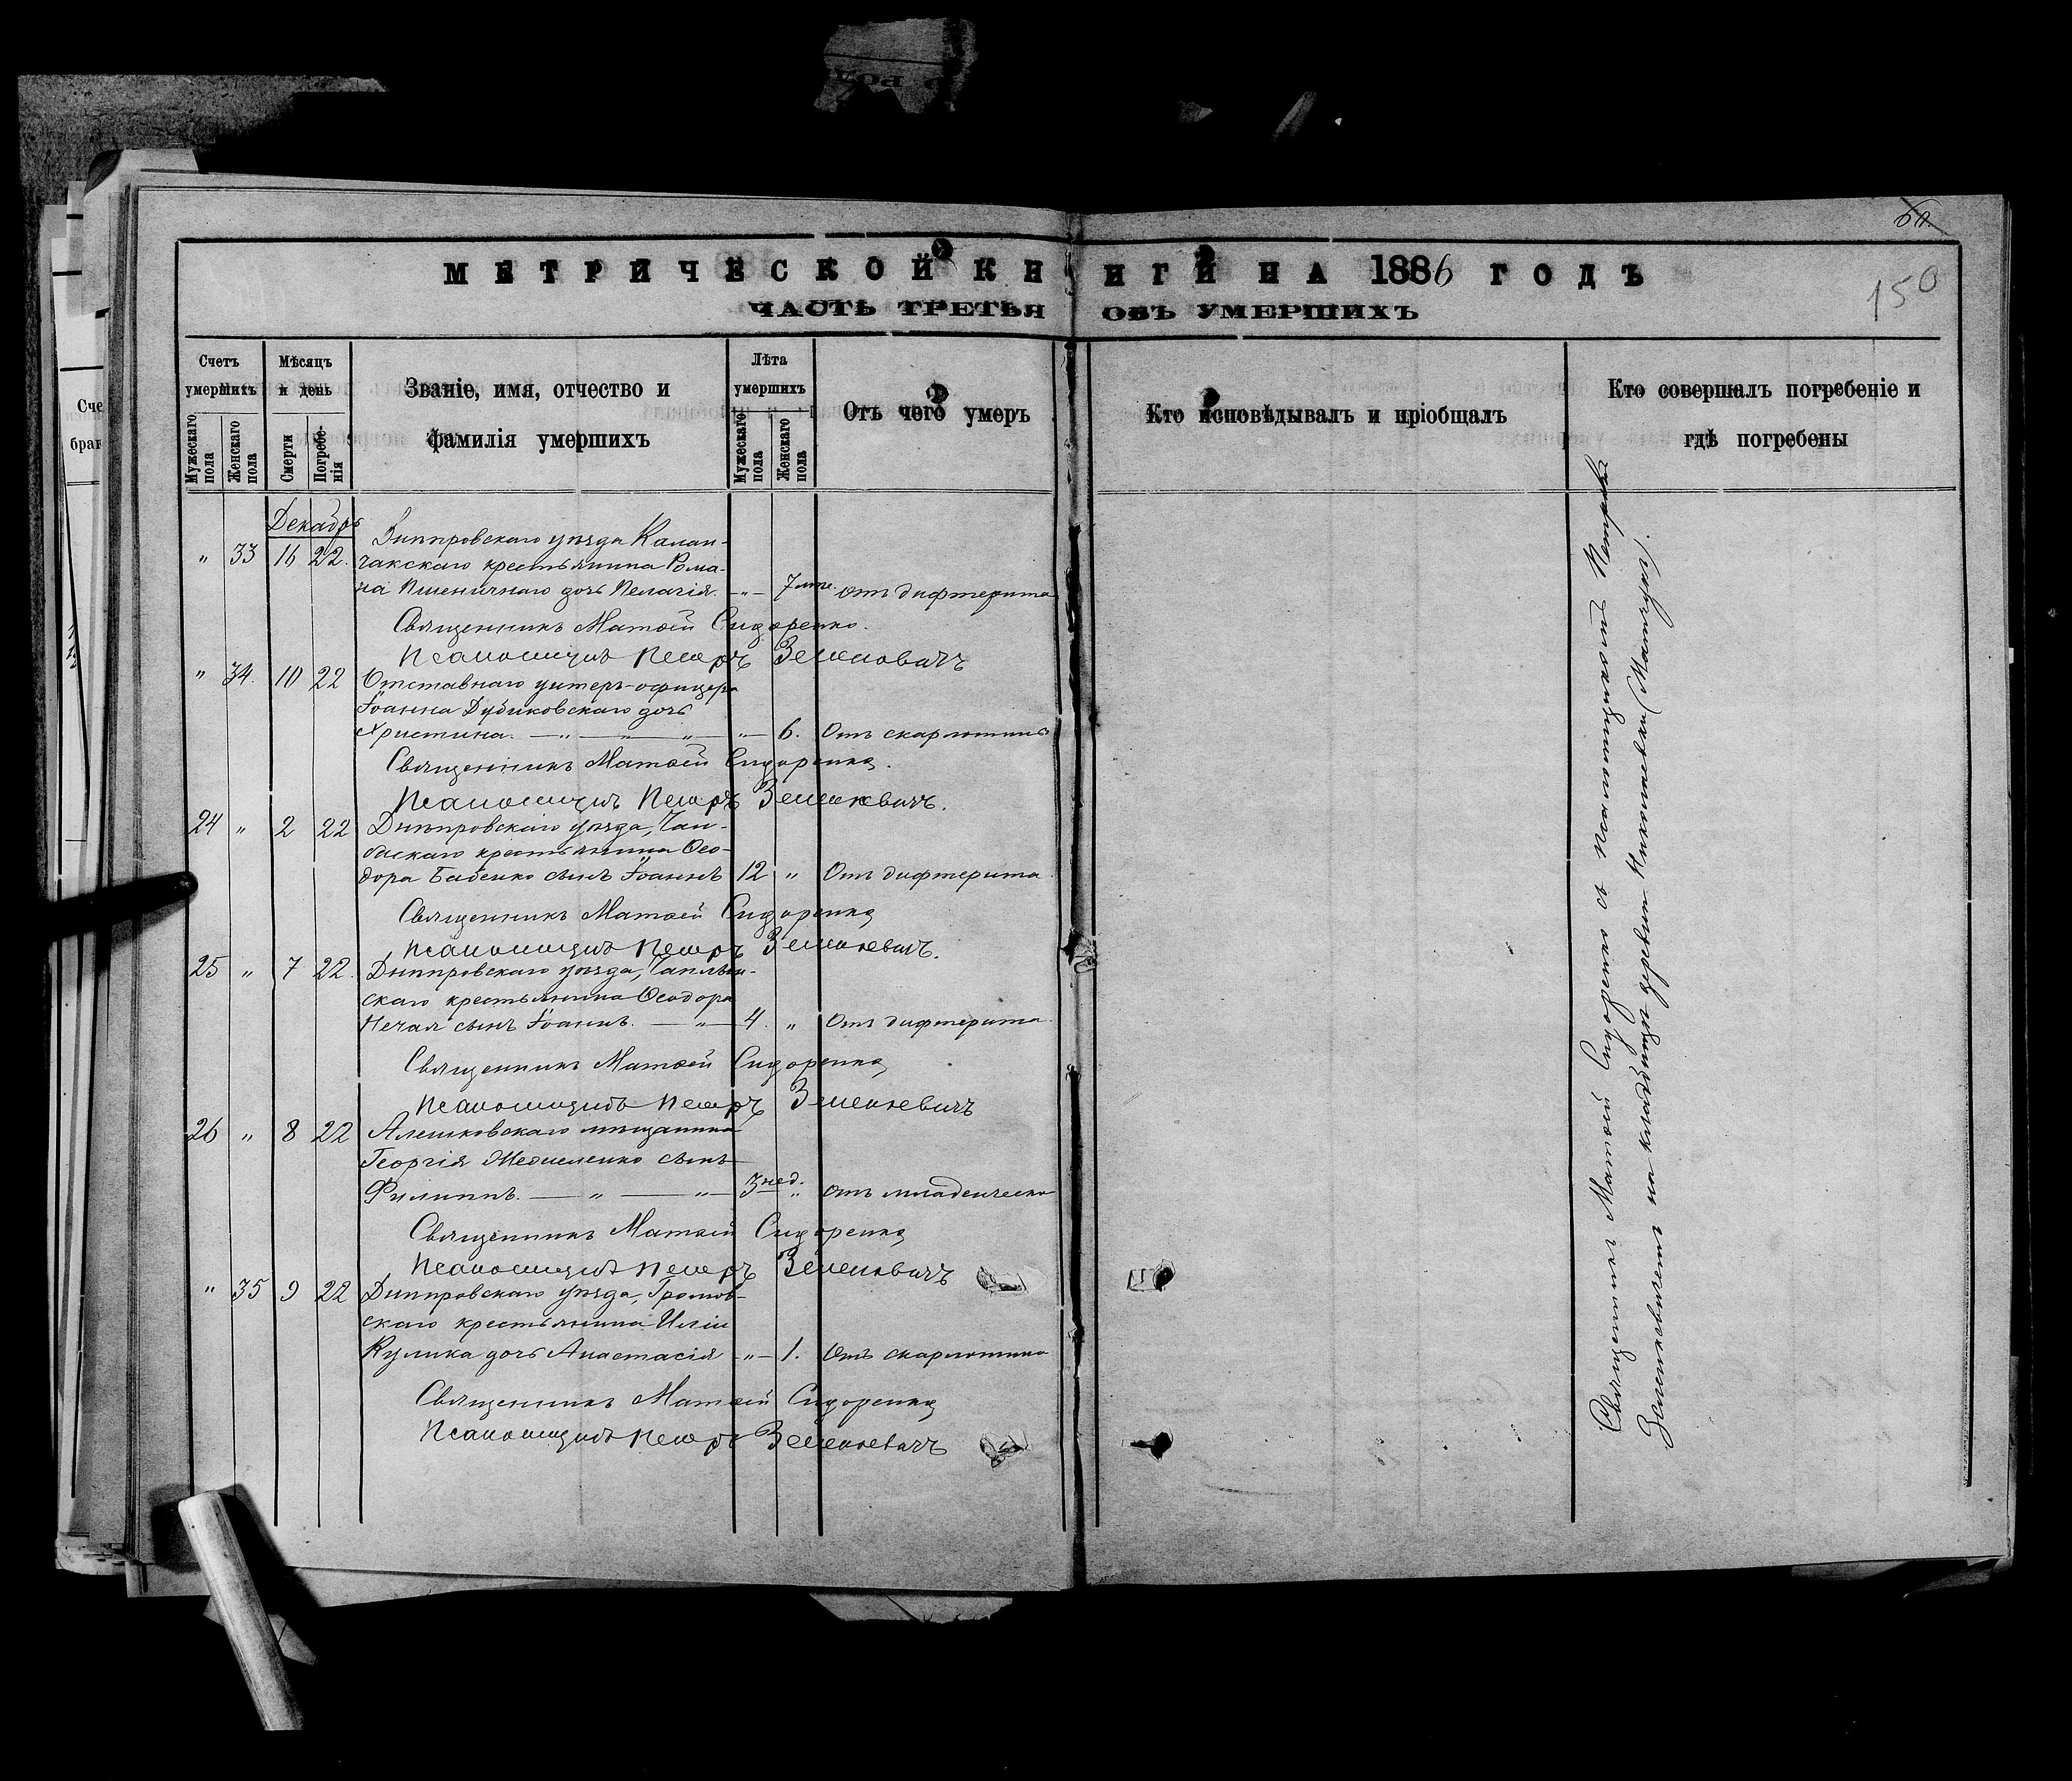 60.
МЕТРИЧЕСКОЙ КНИГИ НА 1886 ГОДЪ
150
ЧАСТЬ ТРЕТЬЯ ОБЪ УМЕРШИХЪ
Счетъ умершихъ
Мужескаго пола
Женскаго пола
Мѣсяцъ и день
Смерти
Погребенія
Званіе, имя, отчество и
фамилія умершихъ
Лѣта умершихъ
Мужескаго пола
Женскаго пола
Отъ чего умеръ
Кто исповѣдывалъ и пріобщалъ
Кто совершалъ погребеніе и
гдѣ погребены
Сче
бра
Декабрь
Днѣпровскаго уѣзда Калан-
" 33 16 22. чакскаго крестьянина Рома-
на Пшеничнаго дочь Пелагія. — " — 7 лѣт. отъ дифтерита
Священникъ Матѳей Сидоренко.
Псаломщикъ Петръ Зеленкевичъ
" 34. 10 22 Отставнаго унтеръ-офицера
Іоанна Дубиковскаго дочь
Христина. — " — " — " — " — 6. Отъ скарлатины
Священникъ Матѳей Сидоренко.
Псаломщикъ Петръ Зеленкевичъ.
24 " 2 22 Днѣпровскаго уѣзда, Чап-
баскаго крестьянина Ѳео-
дора Бабенко сынъ Іоаннъ 12 " Отъ дифтерита
Священникъ Матѳей Сидоренко
Псаломщикъ Петръ Зеленкевичъ.
25 " 7 22. Днѣпровскаго уѣзда, Чаплын-
скаго крестьянина Ѳеодора
Нечая сынъ Іоаннъ. — " — 4. " Отъ дифтерита
Священникъ Матѳей Сидоренко
Псаломщикъ Петръ Зеленкевичъ
26 " 8 22 Алешковскаго мѣщанина
Георгія сынъ
Филиппъ. — " — " — 3 нед. " Отъ младенческой
Священникъ Матѳей Сидоренко
Псаломщикъ Петръ Зеленкевичъ
" 35 9 22 Днѣпровскаго уѣзда, Громов-
скаго крестьянина Иліи
Кулика дочь Анастасія — " — 1. Отъ скарлатины
Священникъ Матѳей Сидоренко
Псаломщикъ Петръ Зеленкевичъ
Священникъ Матѳей Сидоренко съ псаломщикомъ Петромъ
Зеленкевичемъ на кладбищѣ деревни Николаевки (Манчукъ).